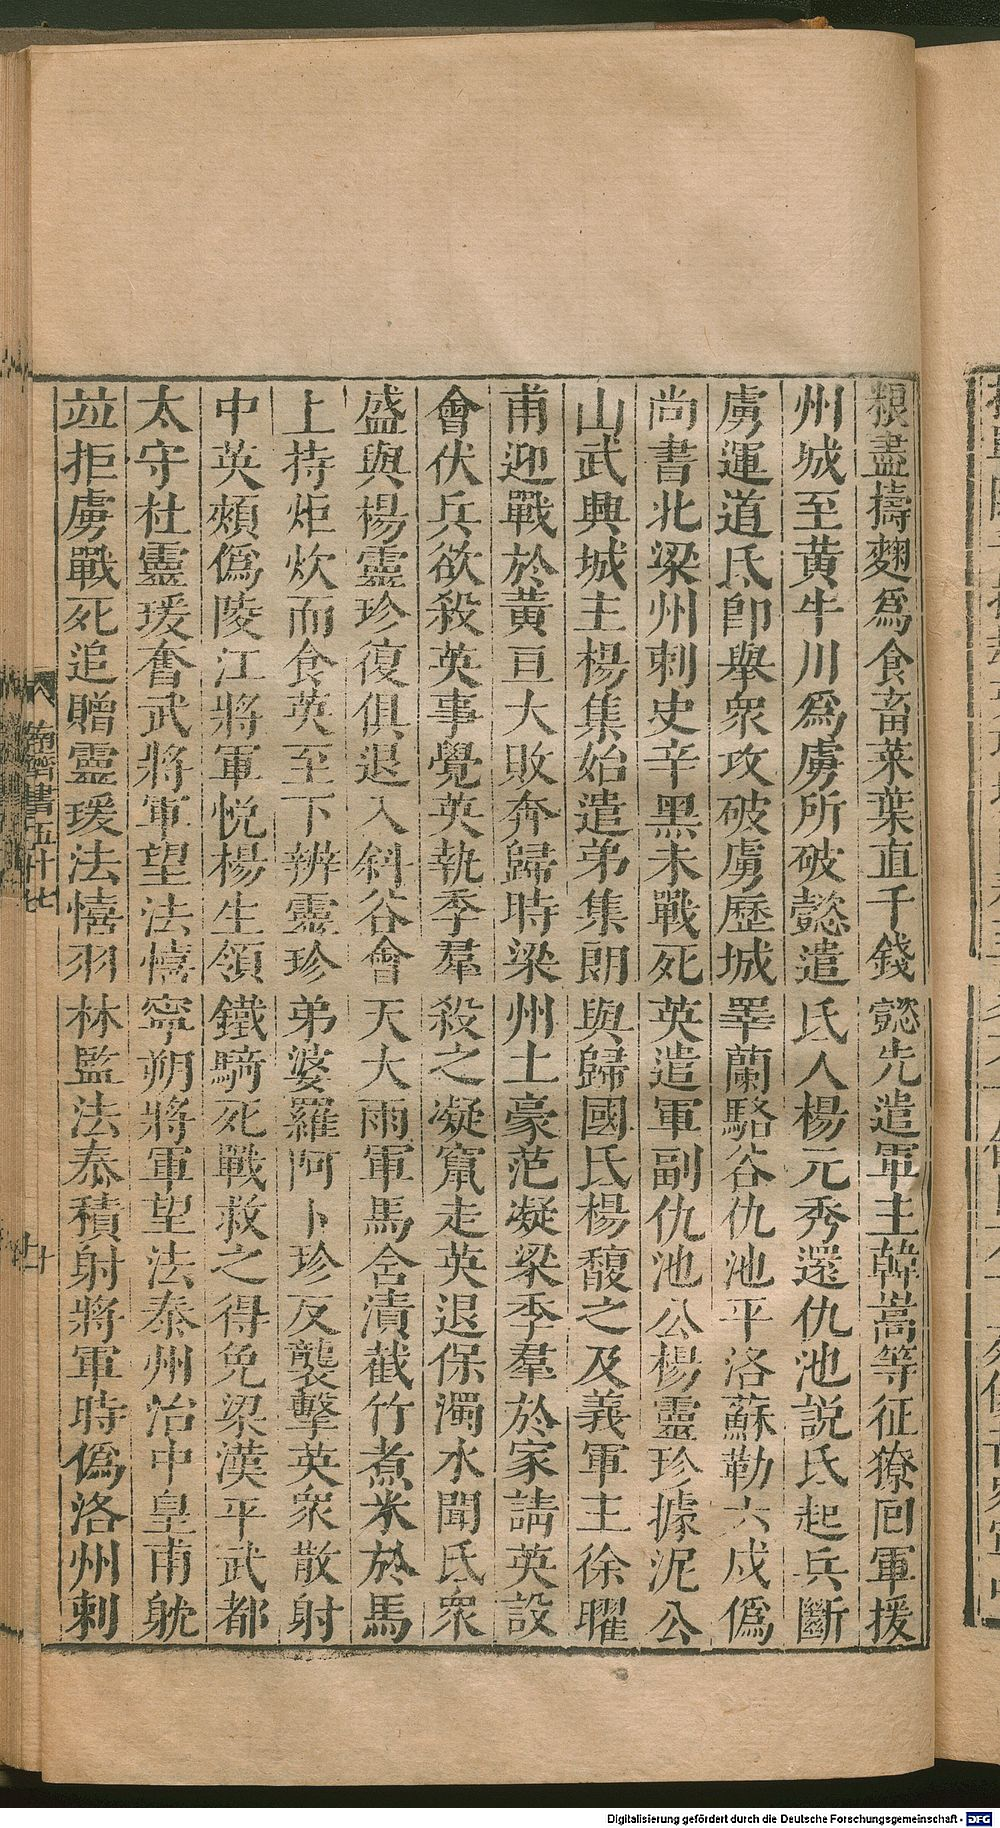 粮盡擣麴爲食畜菜葉直千錢懿先遣軍主韓嵩等征獠囘軍援
州城至黄牛川爲虜所破懿遣氐人楊元秀還仇池說氐起兵斷
虜運道氐卽舉衆攻破虜歷城睪蘭駱谷仇池平洛蘇勒六戍僞
尚書北梁州刺史辛黑末戰死英遣軍副仇池公楊靈珍據泥公
山武興城主楊集始遣弟集朗與歸國氐楊馥之及義軍主徐曜
甫迎戰於黄亘大敗奔歸時梁州土豪范凝梁季羣於家請英設
會伏兵欲殺英事覺英執季羣殺之凝竄走英退保濁水聞氐衆
盛與楊靈珍復俱退入斜谷會天大雨軍馬含漬截竹煮米於馬
上持炬炊而食英至下辨靈珍弟婆羅阿卜珍反襲擊英衆散射
中英頰僞陵江將軍悅楊生領鐵騎死戰救之得免梁漢平武都
太守杜靈瑗奮武將軍望法憘寧朔將軍望法泰州治中皇甫躭
竝拒虜戰死追贈靈瑗法憘羽林監法泰積射將軍時僞洛州刺
南齊書五十七
十
Digitalisierung gefördert durch die Deutsche Forschungsgemeinschaft - DFG